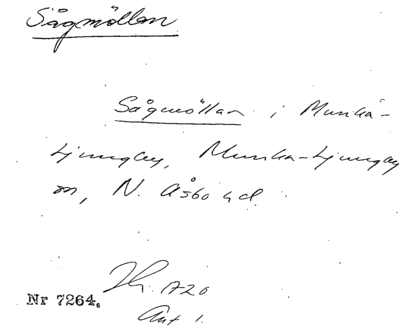 Sågmöllan
Sågmöllan i Munka-
Ljungby, Munka-Ljungby
sn, N. Åsbo hd.
A20
Nr 7264.
Ant 1.